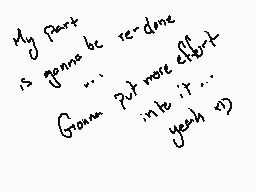 My part
is gonna be re-done
...
Gonna put more effort
into it ...
yeah =))